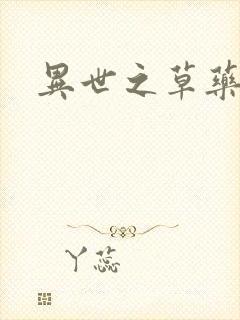 異世之草藥
丫蕊